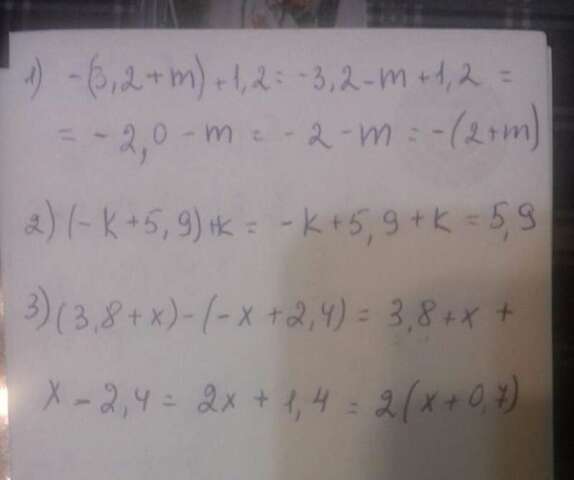 1) -(3,2+m)+1,2=-3,2-m+1,2=
=-2,0-m=-2-m=-(2+m)
2) (-k+5,9)+k=-k+5,9+k=5,9
3) (3,8+x)-(-x+2,4)=3,8+x+
x-2,4=2x+1,4=2(x+0,7)